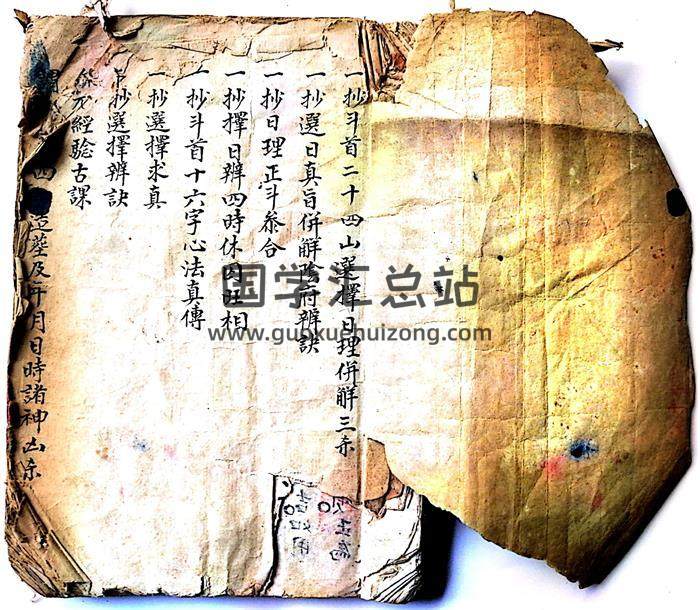 一抄斗首二十四山選擇日理併觧三条
一抄選日真旨併觧陰府辨訣
一抄日理正斗叅合
一抄擇日辨四時休囚旺相
一抄斗首十六字心法真傳
一抄選擇求真
抄選擇辨訣
經驗古課
造塟及年月日時諸神凶条
国学汇总站
www.guoxuehuizong.com